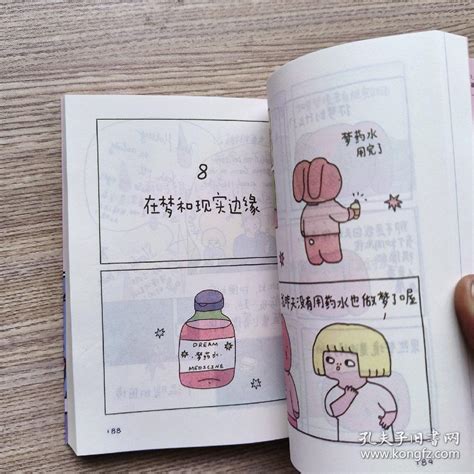 8
在梦和现实边缘
DREAM
梦药水
MEDICINE
188
梦药水
用完了
昨天没有用药水也做梦了喔
189
孔夫子旧书网
www.kongfz.com